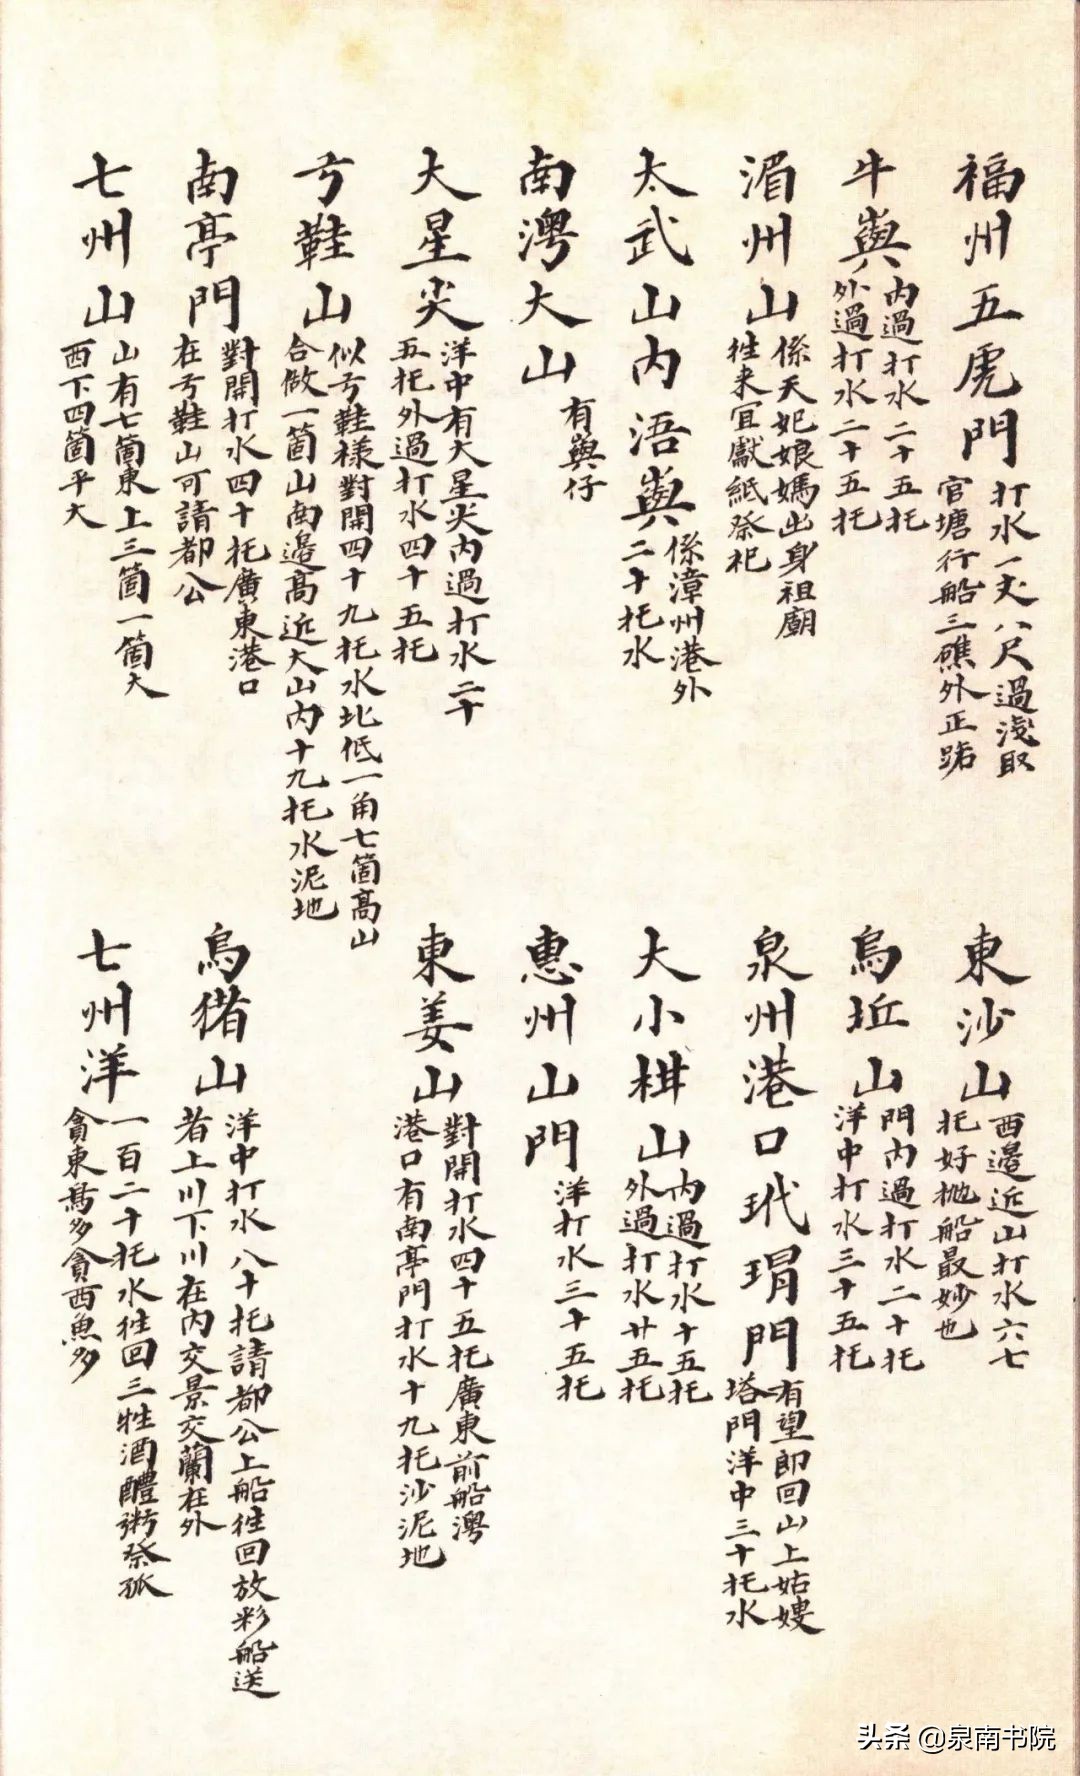 福州五虎門 打水一丈八尺過淺取
官塘行船三礁外正路
東沙山 西邉近山打水六七
托好抛船最妙也
牛㠘 内過打水二十五托
外過打水二十五托
烏坵山 門内過打水二十托
洋中打水三十五托
湄州山 係天妃娘媽出身祖廟
往来宜獻紙祭祀
泉州港口玳瑁門 有望郎回山上姑嫂
塔門洋中三十托水
太武山内浯㠘 係漳州港外
二十托水
大小柑山 内過打水十五托
外過打水廿五托
南澳大山 有㠘仔
惠州山門 洋打水三十五托
大星尖 洋中有大星尖内過打水二十
五托外過打水四十五托
東姜山 對開打水四十五托廣東前船澳
港口有南亭門打水十九托沙泥地
弓鞋山 似弓鞋樣對開四十九托水北低一角七箇高山
合做一箇山南邉高近大山内十九托水泥地
南亭門 對開打水四十托廣東港口
在弓鞋山可請都公
烏猪山 洋中打水八十托請都公上船往回放彩船送
者上川下川在内交景交蘭在外
七州山 山有七箇東上三箇一箇大
西下四箇平大
七州洋 一百二十托水往回三牲酒醴粥祭孤
貪東鳥多貪西魚多
头条 @泉南书院